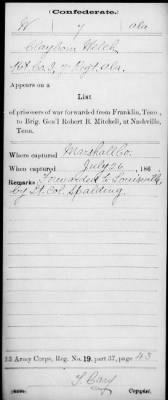 Confederate.
W 7 Ala
Clayborn Welch
Appears on a
List
of prisoners of war forwarded from Franklin, Tenn.,
to Brig. Gen'l Robert B. Mitchell, at Nashville,
Tenn.
Where captured Marshall Co.
When captured July 26, 186
Remarks Forwarded to Louisville
by Lt. Col. Spalding.
Army Corps, Reg. No. 19, part 37, page 43
Copyist.